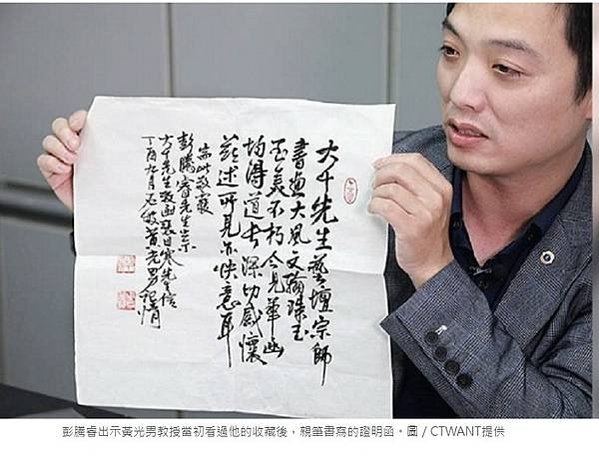 大千先生藝壇宗師
書畫大風文翰珠玉
至美不朽今見華函
均得道長深切感懷
茲述所見亦快意耳
耑此敬覆
彭騰睿先生出示
大千先生致函張目寒先生信
丁酉九月黃光男
彭騰睿出示黃光男教授當初看過他的收藏後，親筆書寫的證明函。圖 / CTWANT提供